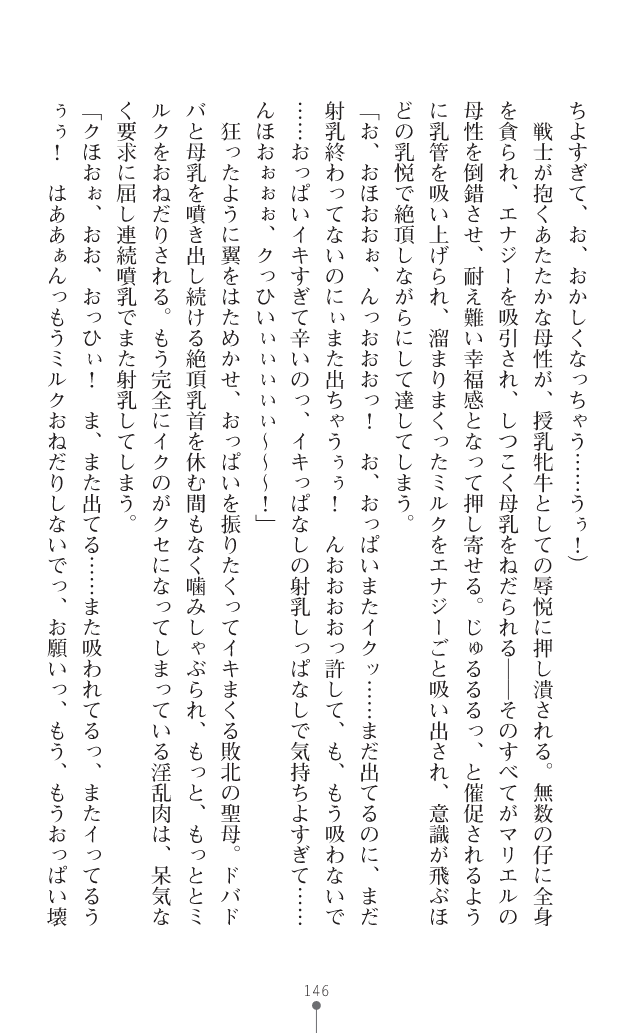 ちよすぎて、お、おかしくなっちゃう……うぅ！）
　戦士が抱くあたたかな母性が、授乳牝牛としての辱悦に押し潰される。無数の仔に全身
を貪られ、エナジーを吸引され、しつこく母乳をねだられる――そのすべてがマリエルの
母性を倒錯させ、耐え難い幸福感となって押し寄せる。じゅるるるっ、と催促されるよう
に乳管を吸い上げられ、溜まりまくったミルクをエナジーごと吸い出され、意識が飛ぶほ
どの乳悦で絶頂しながらにして達してしまう。
「お、おほおおぉ、んっおおおっ！　お、おっぱいまたイクッ……まだ出てるのに、まだ
射乳終わってないのにぃまた出ちゃうぅぅ！　んおおおおっ許して、も、もう吸わないで
……おっぱいイキすぎて辛いのっ、イキっぱなしの射乳しっぱなしで気持ちよすぎて……
んほおぉぉぉ、クっひいぃぃぃぃぃ～～～！」
　狂ったように翼をはためかせ、おっぱいを振りたくってイキまくる敗北の聖母。ドバド
バと母乳を噴き出し続ける絶頂乳首を休む間もなく噛みしゃぶられ、もっと、もっととミ
ルクをおねだりされる。もう完全にイクのがクセになってしまっている淫乱肉は、呆気な
く要求に屈し連続噴乳でまた射乳してしまう。
「クほおぉ、おお、おっひぃ！　ま、また出てる……また吸われてるっ、またイってるう
ぅぅ！　はああぁんっもうミルクおねだりしないでっ、お願いっ、もう、もうおっぱい壊
146